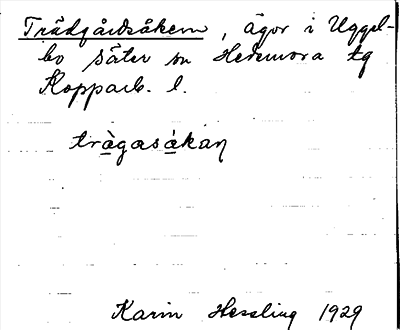 Trädgårdsåkern, ägor i Uggel-
bo Säter sn Hedemora tg
Kopparb. l.
trägasåkan
Karin Hessling 1929